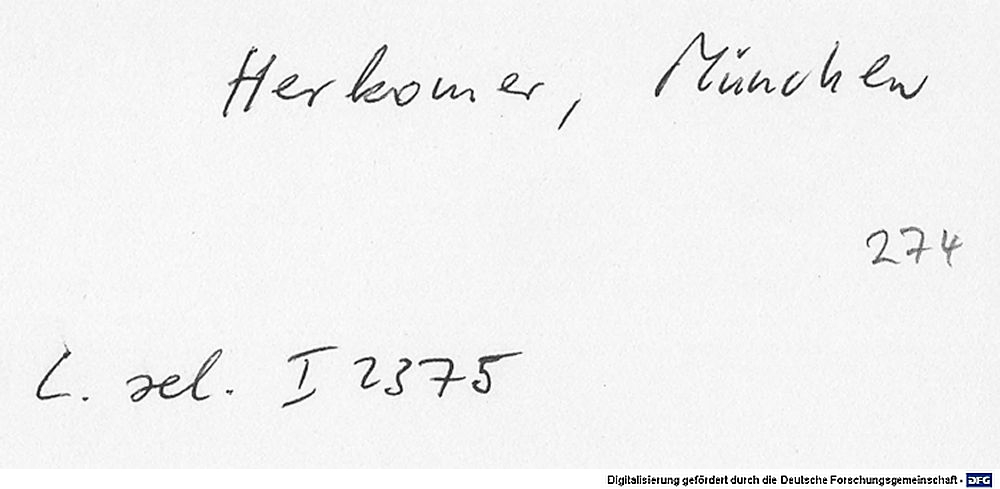 Herkomer, München
274
L. sel. I 2375
Digitalisierung gefördert durch die Deutsche Forschungsgemeinschaft - DFG